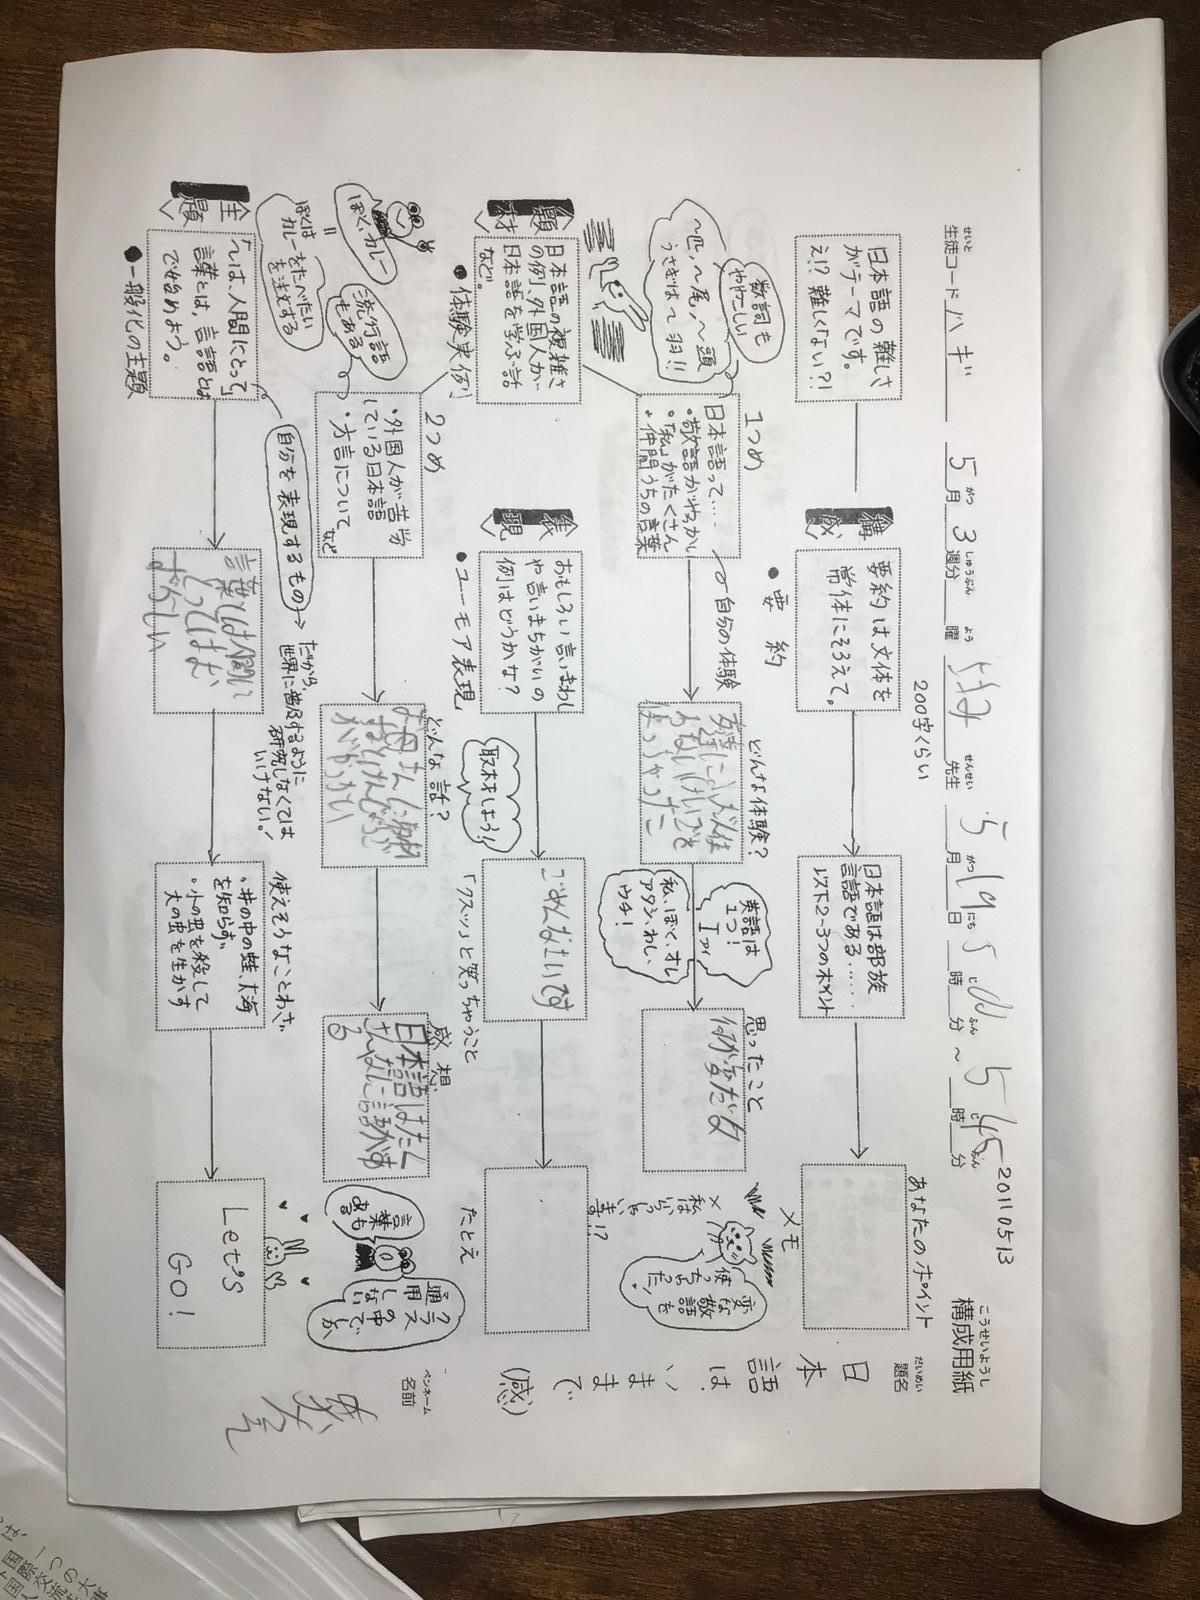 構成用紙
こうせいようし
20110513
生徒コード ハギ
せいと
5月3週分
がつ しゅうぶん
曜
よう
先生
せんせい
5月19日5時
がつ にち じ
分～5時45分
ふん じ ふん
題名
だいめい
日本語は、いままで(感)
ペンネーム
名前
日本語の難しさ
がテーマです。
え!?難しくない?!
構成
要約は文体を
常体にそろえて。
●要約
200字くらい
日本語は部族
言語である……
以下2～3つのポイント
あなたのポイント
数詞も
ややこしい
～匹、～尾、～頭
うさぎは～羽!!
1つめ
日本語って….
・敬語がむずかしい
・「私」がたくさん
・仲間うちの言葉
自分の体験
どんな体験?
友達にふだん使
わないけいごを
使っちゃったこ
英語は
1つ!
I
アイ
私、ぼく、オレ
アタシ、わし、
ウチ!
思ったこと
何か変だな
メモ
×
私は
ます!?
変な敬語を
使っちゃった!
題材
日本語の複雑さ
の例、外国人が
日本語を学ぶ話
など。
●体験実例
表現
おもしろい言いまわし
や言いまちがいの
例はどうかな?
●ユーモア表現
取材しよう!
ごめんなさいです
「クスッ」と笑っちゃうこと
たとえ
ぼく、カレー
＝
ぼくは
カレーをたべたい
を注文する
流行語
もある
2つめ
・外国人が苦労
している日本語
・方言について
など
どんな話?
お母さん
感想
日本語はたく
さん
る
言葉も
ある
クラスの中でしか
通用しない
主題
「～は、人間にとって」
言葉とは、言語とは
で始めよう。
●一般化の主題
自分を表現するもの
だから、
世界に普及するように
研究しなくては
いけない!
言葉とは人間に
とってはむ
ずかしい
使えそうなことわざ
・井の中の蛙、大海
を知らず。
・小の虫を殺して
大の虫を生かす
Let's
GO!